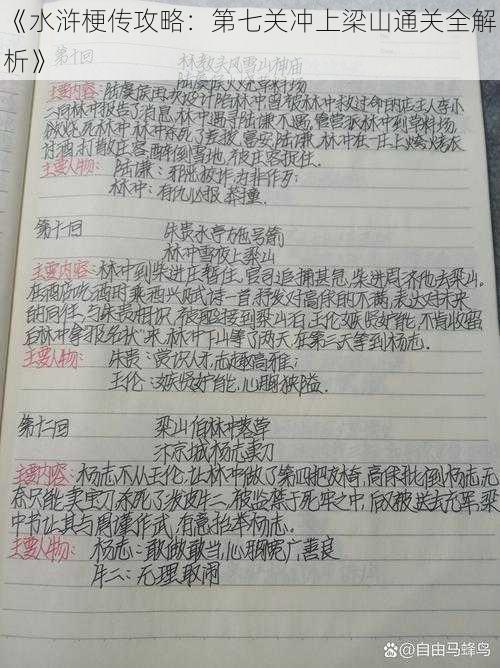 《水浒梗传攻略：第七关冲上梁山通关全解
析》
第十回 林教头风雪山神庙
陆虞候火烧草料场
主要内容：陆虞候再次设计陷林冲，曾被林冲救过命的店主人李小
二向林冲报告了消息，林冲遇寻陆谦不遇，管营派林冲到草料场，
讨酒，打散众庄客，醉倒雪地，被庄客捉住。
主要人物：陆谦：邪恶被作为非作歹；
林冲：有仇必报，莽撞。
第十一回 朱贵水亭施号箭
林冲雪夜上梁山
主要内容：林冲到柴进庄暂住，官司追捕甚急，柴进周济他去梁山。
在酒店吃酒时乘酒兴赋诗一首，抒发对高俅的不满，表达对未来
的向往，与朱贵相识，被船接到梁山泊，王伦嫉贤妒能，不肯收留，
后林冲拿"投名状"来，林冲下山等了两天，在第三天等到杨志。
主要人物：朱贵：赏识人才，志趣高雅；
王伦：嫉贤妒能，心胸狭隘。
第十二回 梁山泊林冲落草
汴京城杨志卖刀
主要内容：杨志不从王伦，让林冲做了第四把交椅，高俅批倒杨志，无
奈只能卖宝刀，杀死了泼皮牛二，被监禁于死牢之中，后又被送去充军，梁
中书让其与周谨作武，有意抬举杨志。
主要人物：杨志：敢做敢当，心胸宽广，善良
牛二：无理取闹
百度 @自由马蜂鸟